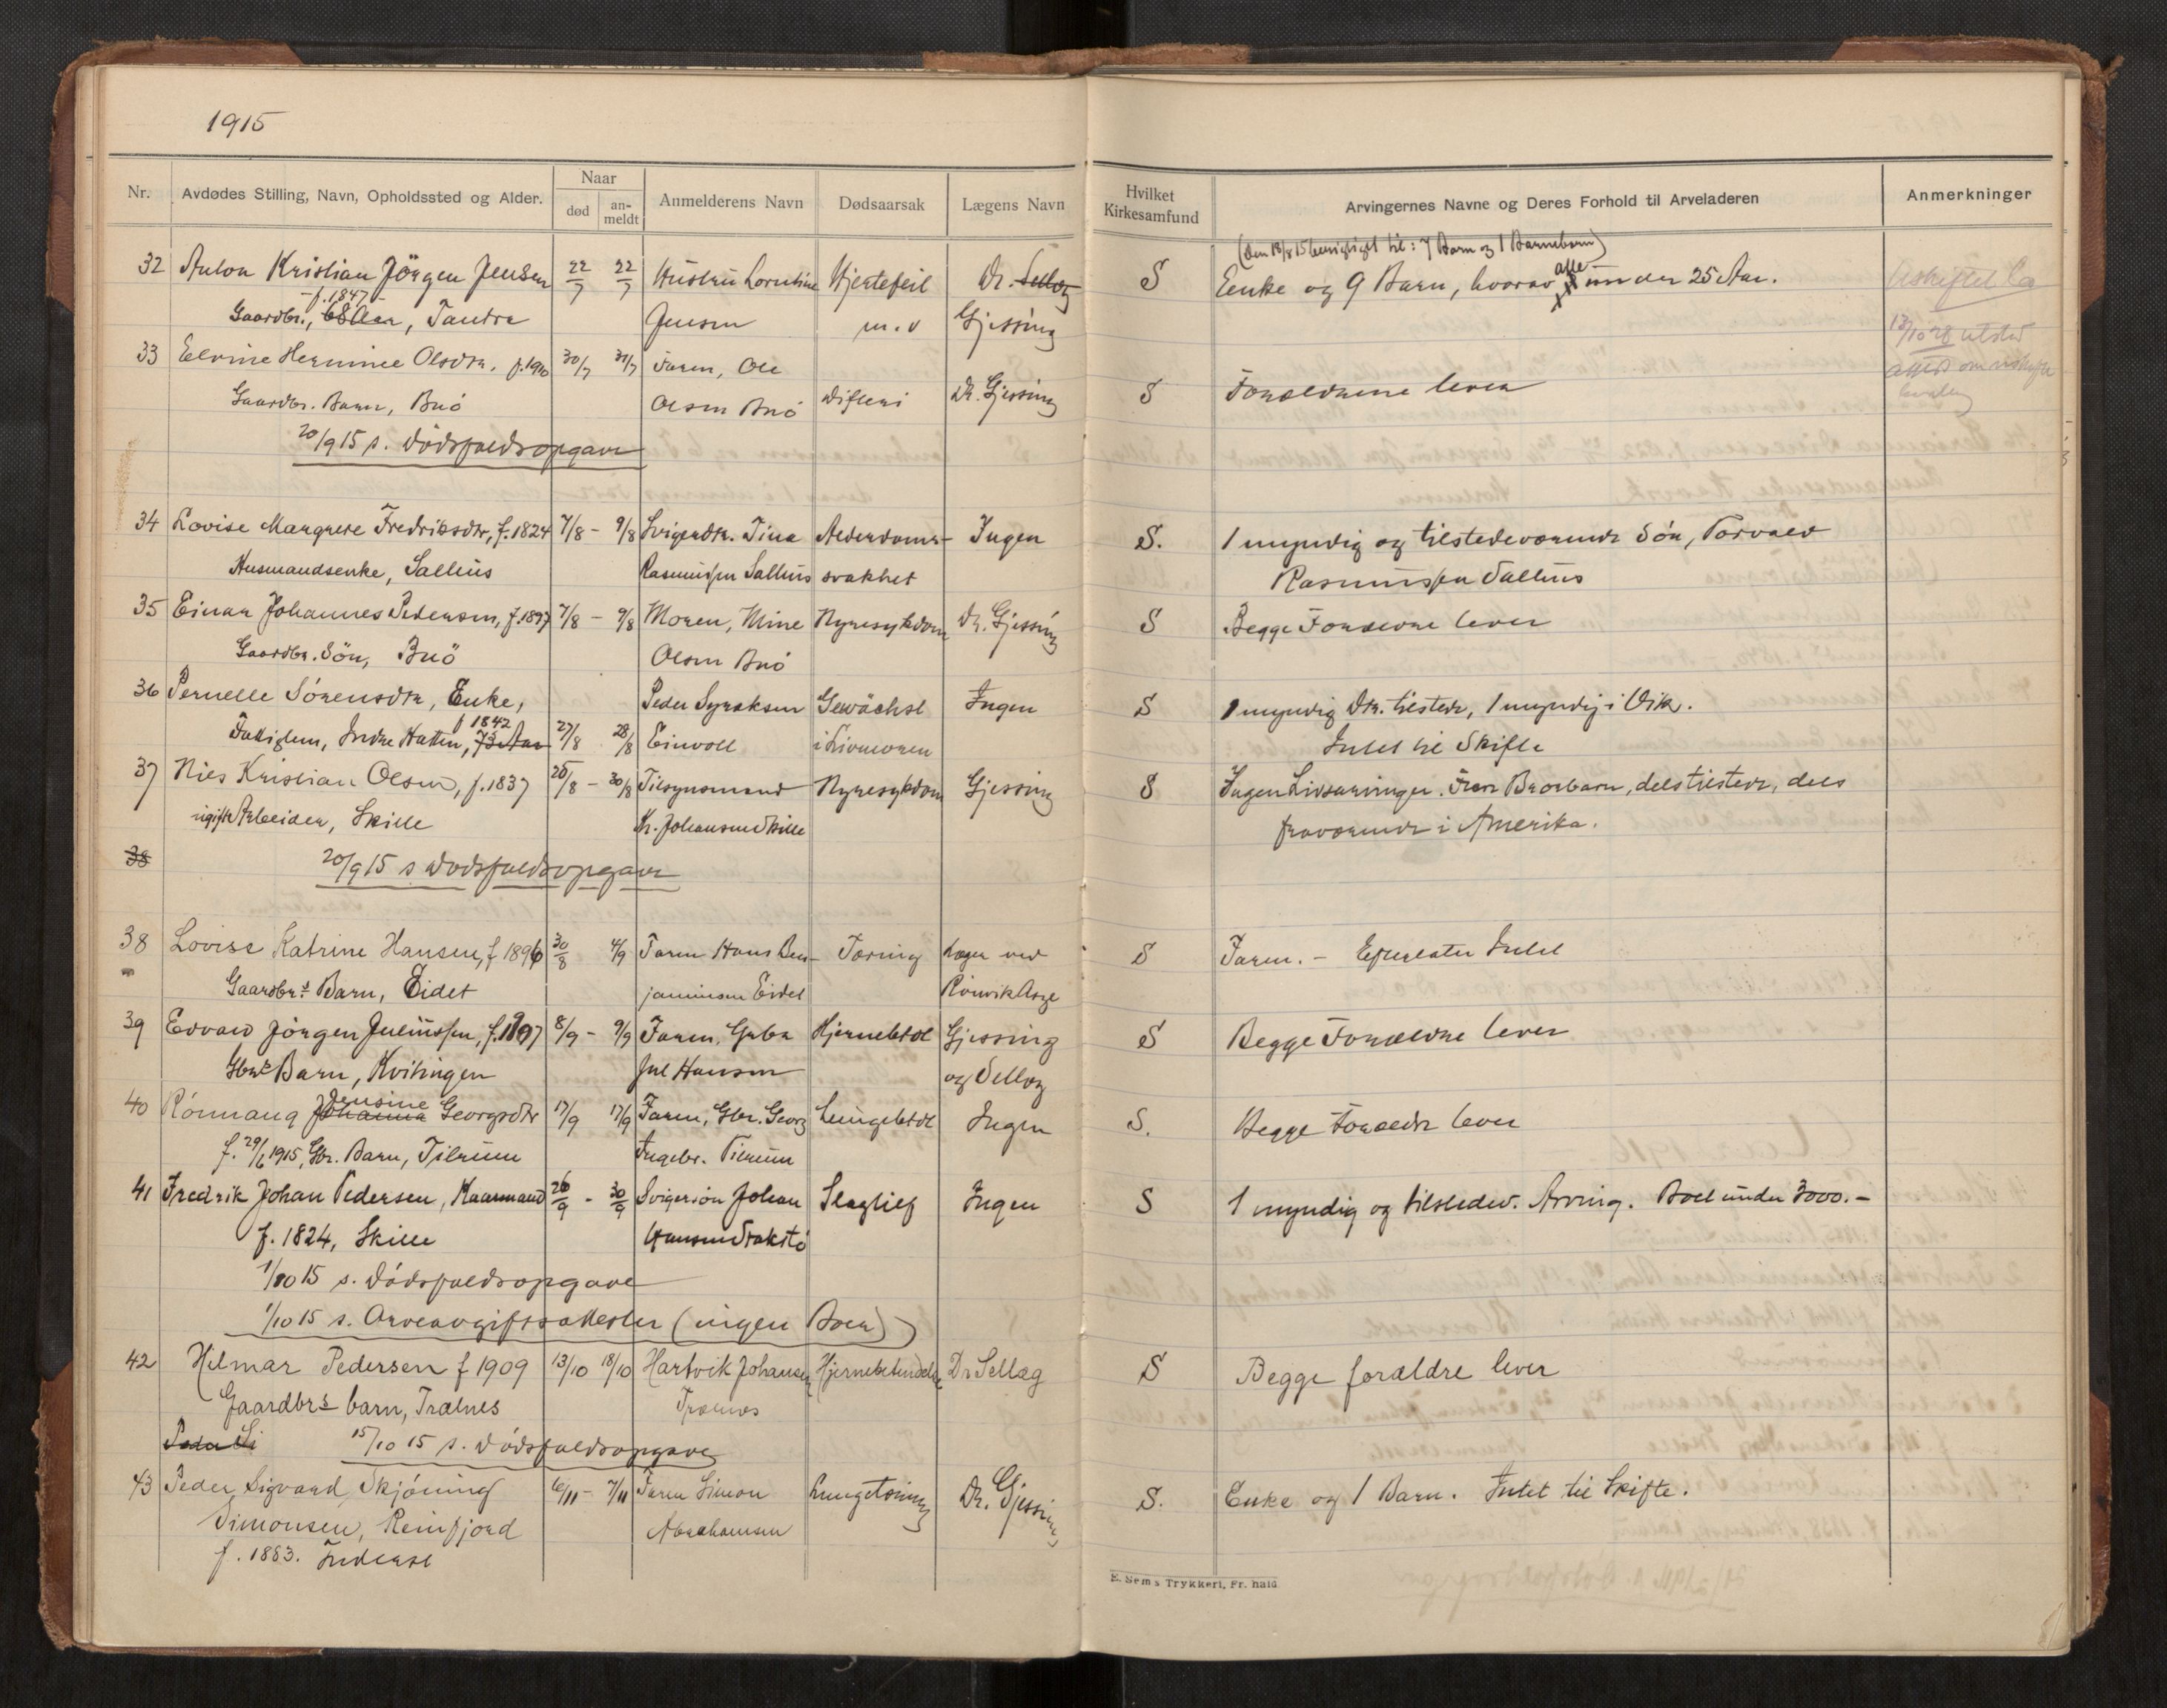 1915
Nr. Avdødes Stilling, Navn, Opholdssted og Alder. Naar død an-meldt Anmelderens Navn Dødsaarsak Lægens Navn Hvilket Kirkesamfund Arvingernes Navne og Deres Forhold til Arveladeren Anmerkninger
(den 18/8 15 7 Barn og 1 Barnebarn)
32 Anton Kristian Jörgen Jensen 22/7 22/7 Hustru Hjertefeil Dr. Sellæg S Enke og 9 Barn, hvorav alle under 25 Aar. Uskiftet Bo
f. 1847
Gaardbr., 68 Aar, Jensen m.v Gjessing
33 Hermine Olsdtr. f. 1910 30/7 31/7 Faren, Ole
Gaardbr. Barn, Buö Olsen Buö Difteri Dr. Gjessing S Forældrene lever
20/9 15 s. Dödsfaldsopgave
34 Lovise Margrete Fredriksdtr, f. 1824 7/8 - 9/8 Svigerdtr. Tina Alderdoms- Ingen S. 1 myndig og tilstedeværende Sön, Torvald
Husmandsenke, Salhus Rasmussen Salhus svakhet Rasmussen Salhus
35 Einar Johannes Pedersen, f. 1897 7/8 - 9/8 Moren, Mine Nyresykdom Dr. Gjessing S Begge Forældre lever
Gaardbr. Sön, Buö Olsen Buö
36 Pernelle Sörensdtr, Enke, Peder Syraksen Gewächst Ingen S 1 myndig Dtr. tilstede, 1 myndig i Vik.
f 1842
Fattiglem, Indre Hatten, 73 Aar 27/8 28/8 Einvoll i Livmoren Intet til Skifte
37 Nils Kristian Olsen, f. 1837 25/8 - 30/8 Tilsynsmand Nyresykdom Gjessing S Ingen Livsarvinger. Brorbarn, dels tilstede, dels
ugift Arbeider, Skille Kr. Johansen Skille fraværende i Amerika.
38 20/9 15 s Dödsfaldsopgave
38 Lovise Katrine Hansen, f 1896 30/8 4/9 Faren Hans Ben- Tæring Læger ved S Faren. - Efterlater Intet
Gaardbr.s Barn, Eidet jaminsen Eidet Rönvik Asyl
39 Edvard Jörgen Juliussen, f. 1907 8/9 - 9/9 Faren, Gaber Hjernebetdl Gjessing S Begge Forældre lever
Gbr.s Barn, Kvitingen Jul Hansen og Sellæg
Jensine
40 Rönnaug Johanna Georgsdtr 17/9 17/9 Faren, Gbr. Georg Lungebetdl Ingen S. Begge Forældre lever
f. 29/6 1915, Gbr. Barn, Tilrum Ingebr. Tilrum
41 Fredrik Johan Pedersen, Kaarmand 26/9 - 30/9 Svigersön Johan Slagtilf Ingen S 1 myndig og tilstedev. Arving. Boet under 3000.-
f. 1824, Skille Hansen
1/10 15 s. Dödsfaldsopgave
1/10 15 s. Arveavgiftsattester (ingen Boer)
42 Hilmar Pedersen f 1909 13/10 18/10 Hartvik Johansen Hjernebetændelse Dr Sellæg S Begge forældre lever
Gaardbrs barn, Trælnes Trælnes
Peder Si 15/10 15 s. Dödsfaldsopgave
43 Peder Sigvard Skjöning 6/11 - 7/11 Faren Simon Lungetæring Dr. Gjessing S. Enke og 1 Barn. Intet til Skifte.
Simonsen, Reinfjord Abrahamsen
f. 1883. Inderst
E. Sem's Trykkeri, Fr. hald